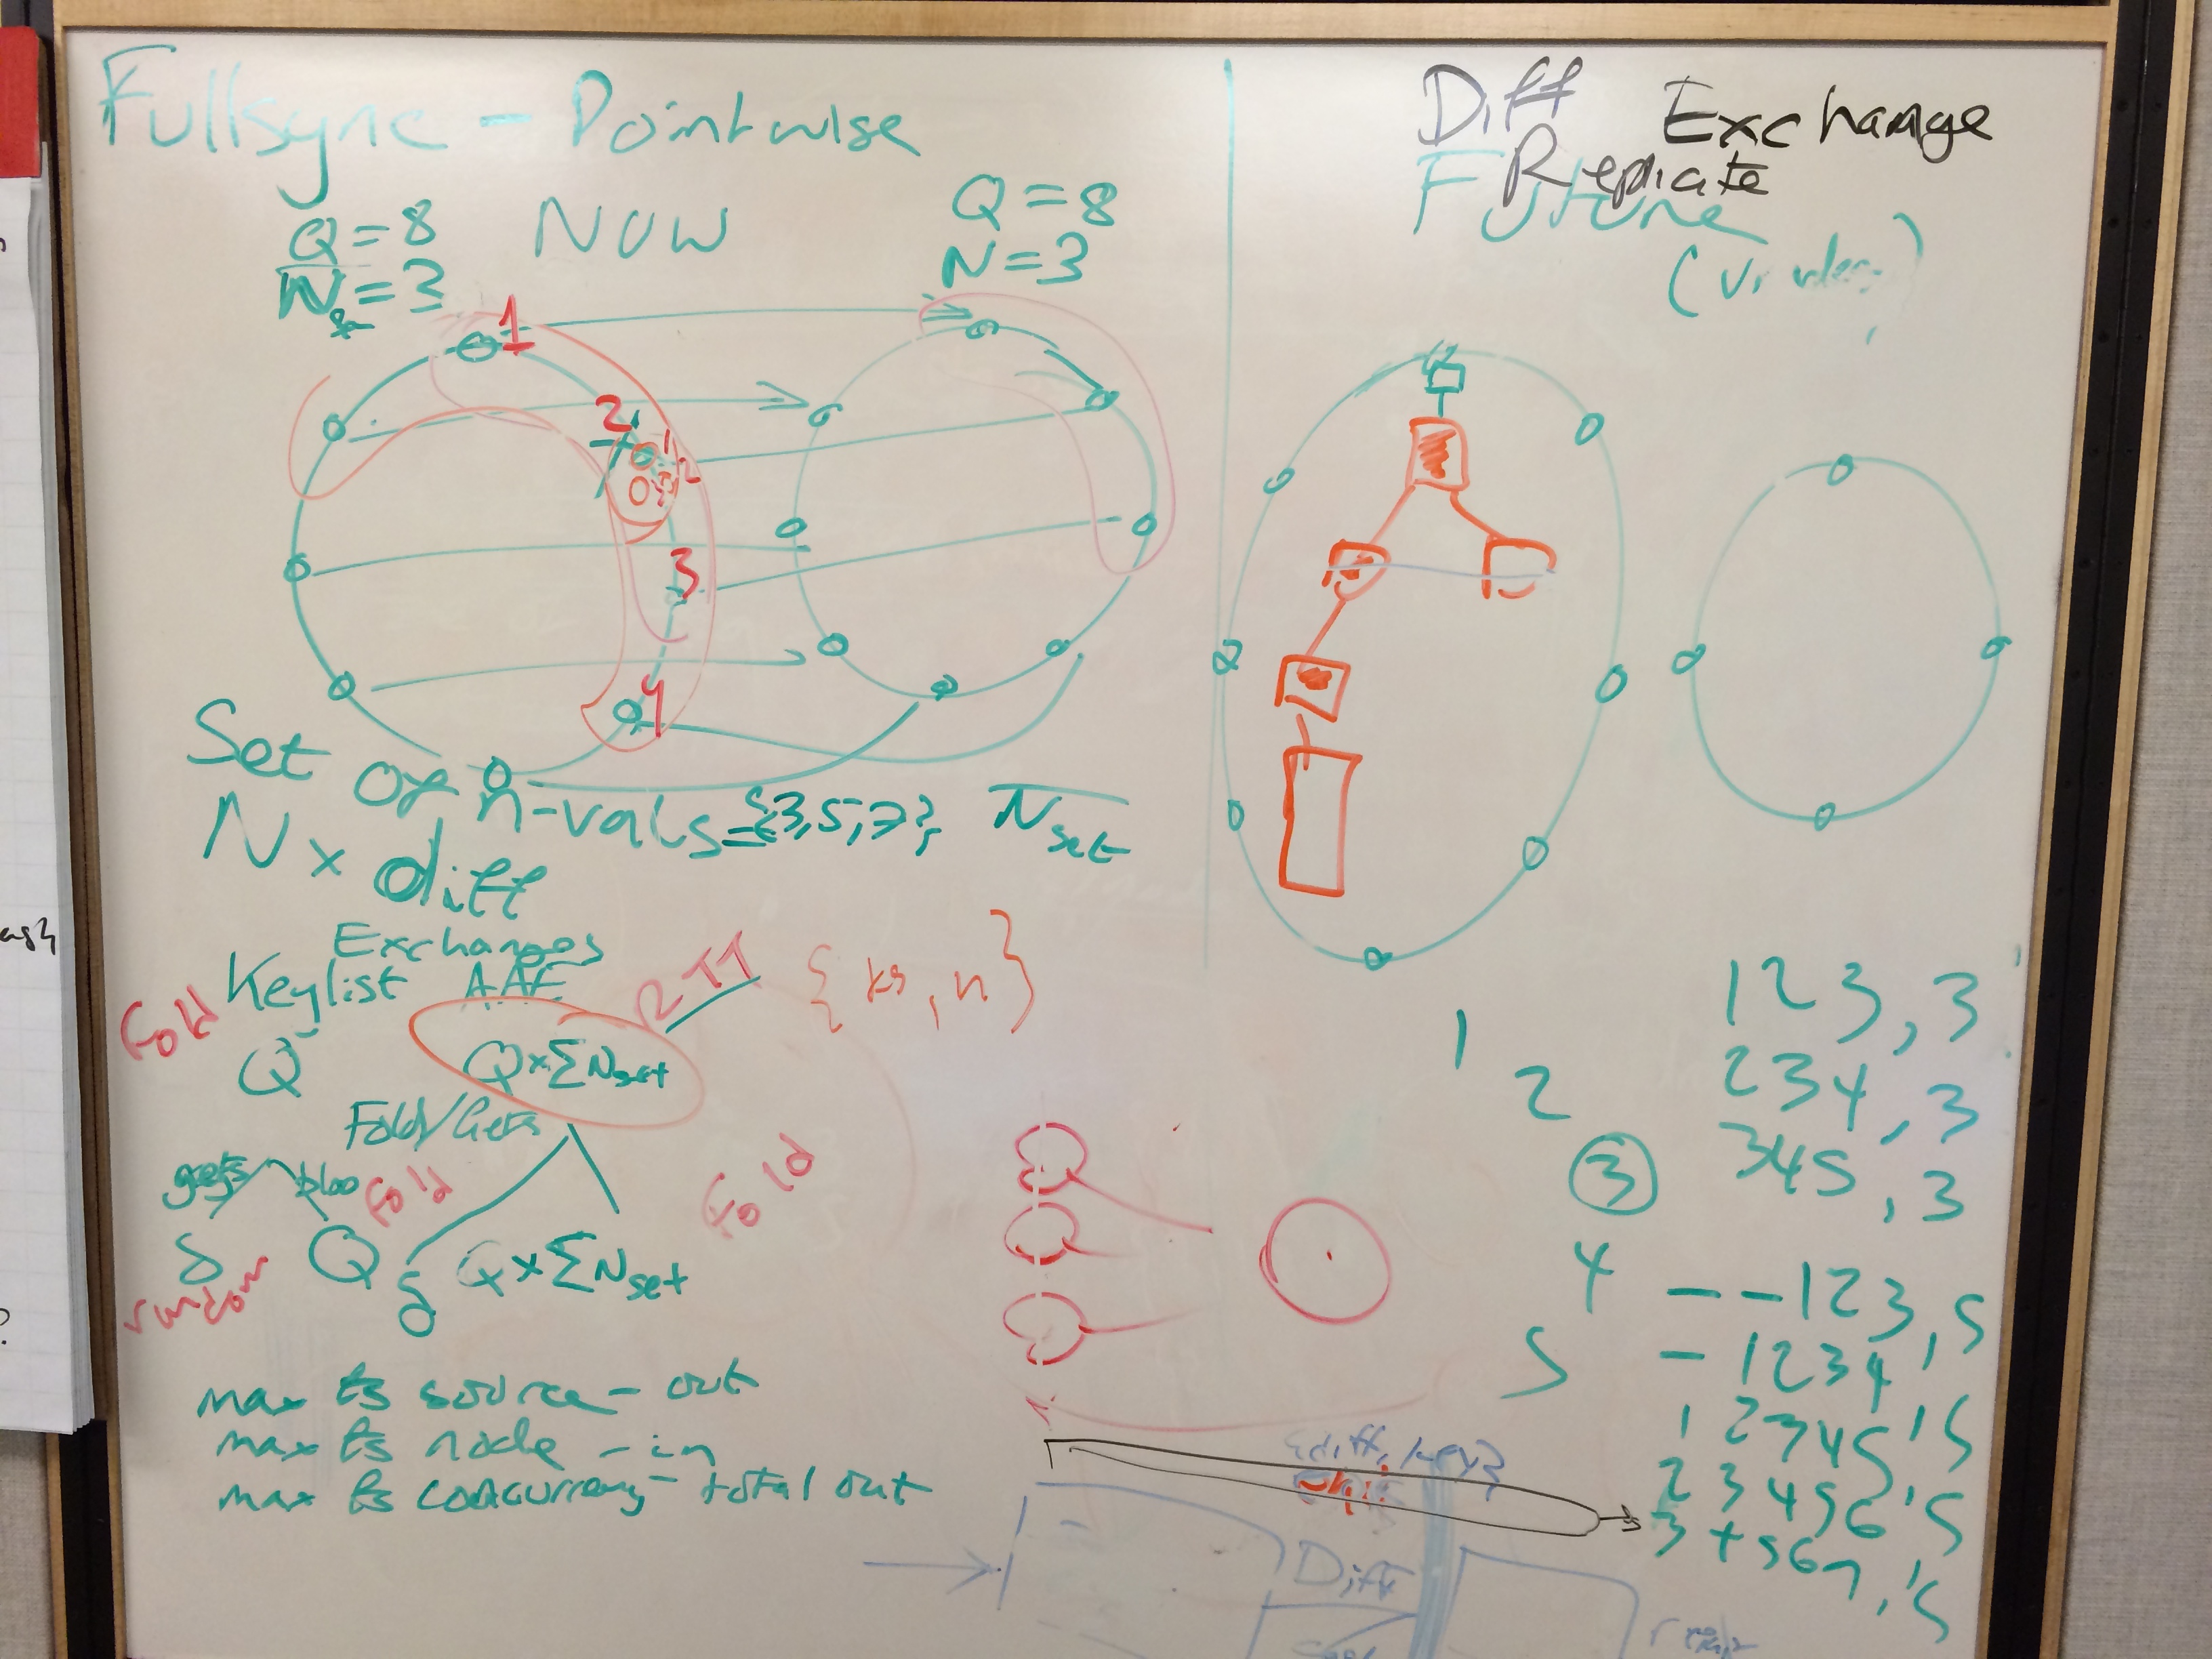 Fullsync - Pointwise
Q=8
N=3
NOW
Q=8
N=3
1
2
1
2
3
3
4
Set of n-vals={3,5,7}
N set
N x diff
Exchanges
Keylist AAE
Fold
RTT
{ks,n}
Q
Q×ΣNset
Fold/Gets
gets
bloo
Fold
Fold
δ
Q
δ
Q×ΣNset
max fs source - out
max fs node - in
max fs concurrency - total out
Diff Exchange
Replicate
Future
1
2
3
4
5
123,3
234,3
345,3
--123,5
-1234,5
12345,5
23456,5
34567,5
{diff, key}
Diff